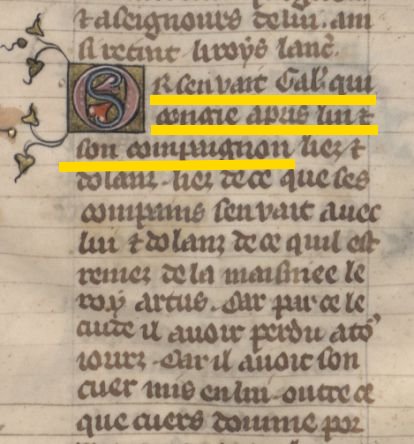 ⁊ a seignours de lui. ain
si retint li roys lanc̄.
Or sen vait Gal. qui
congie apris lui ⁊
son compaignon liez ⁊
dolanz. liez de ce que ses
compains sen vait avec
lui ⁊ dolanz de ce quil est
remez de la maisniee le
roy artus. Car par ce le
cuide il avoir perdu a toꝰ
iourz. Car il avoit son
cuer mis en lui outre ce
que cuers domme por